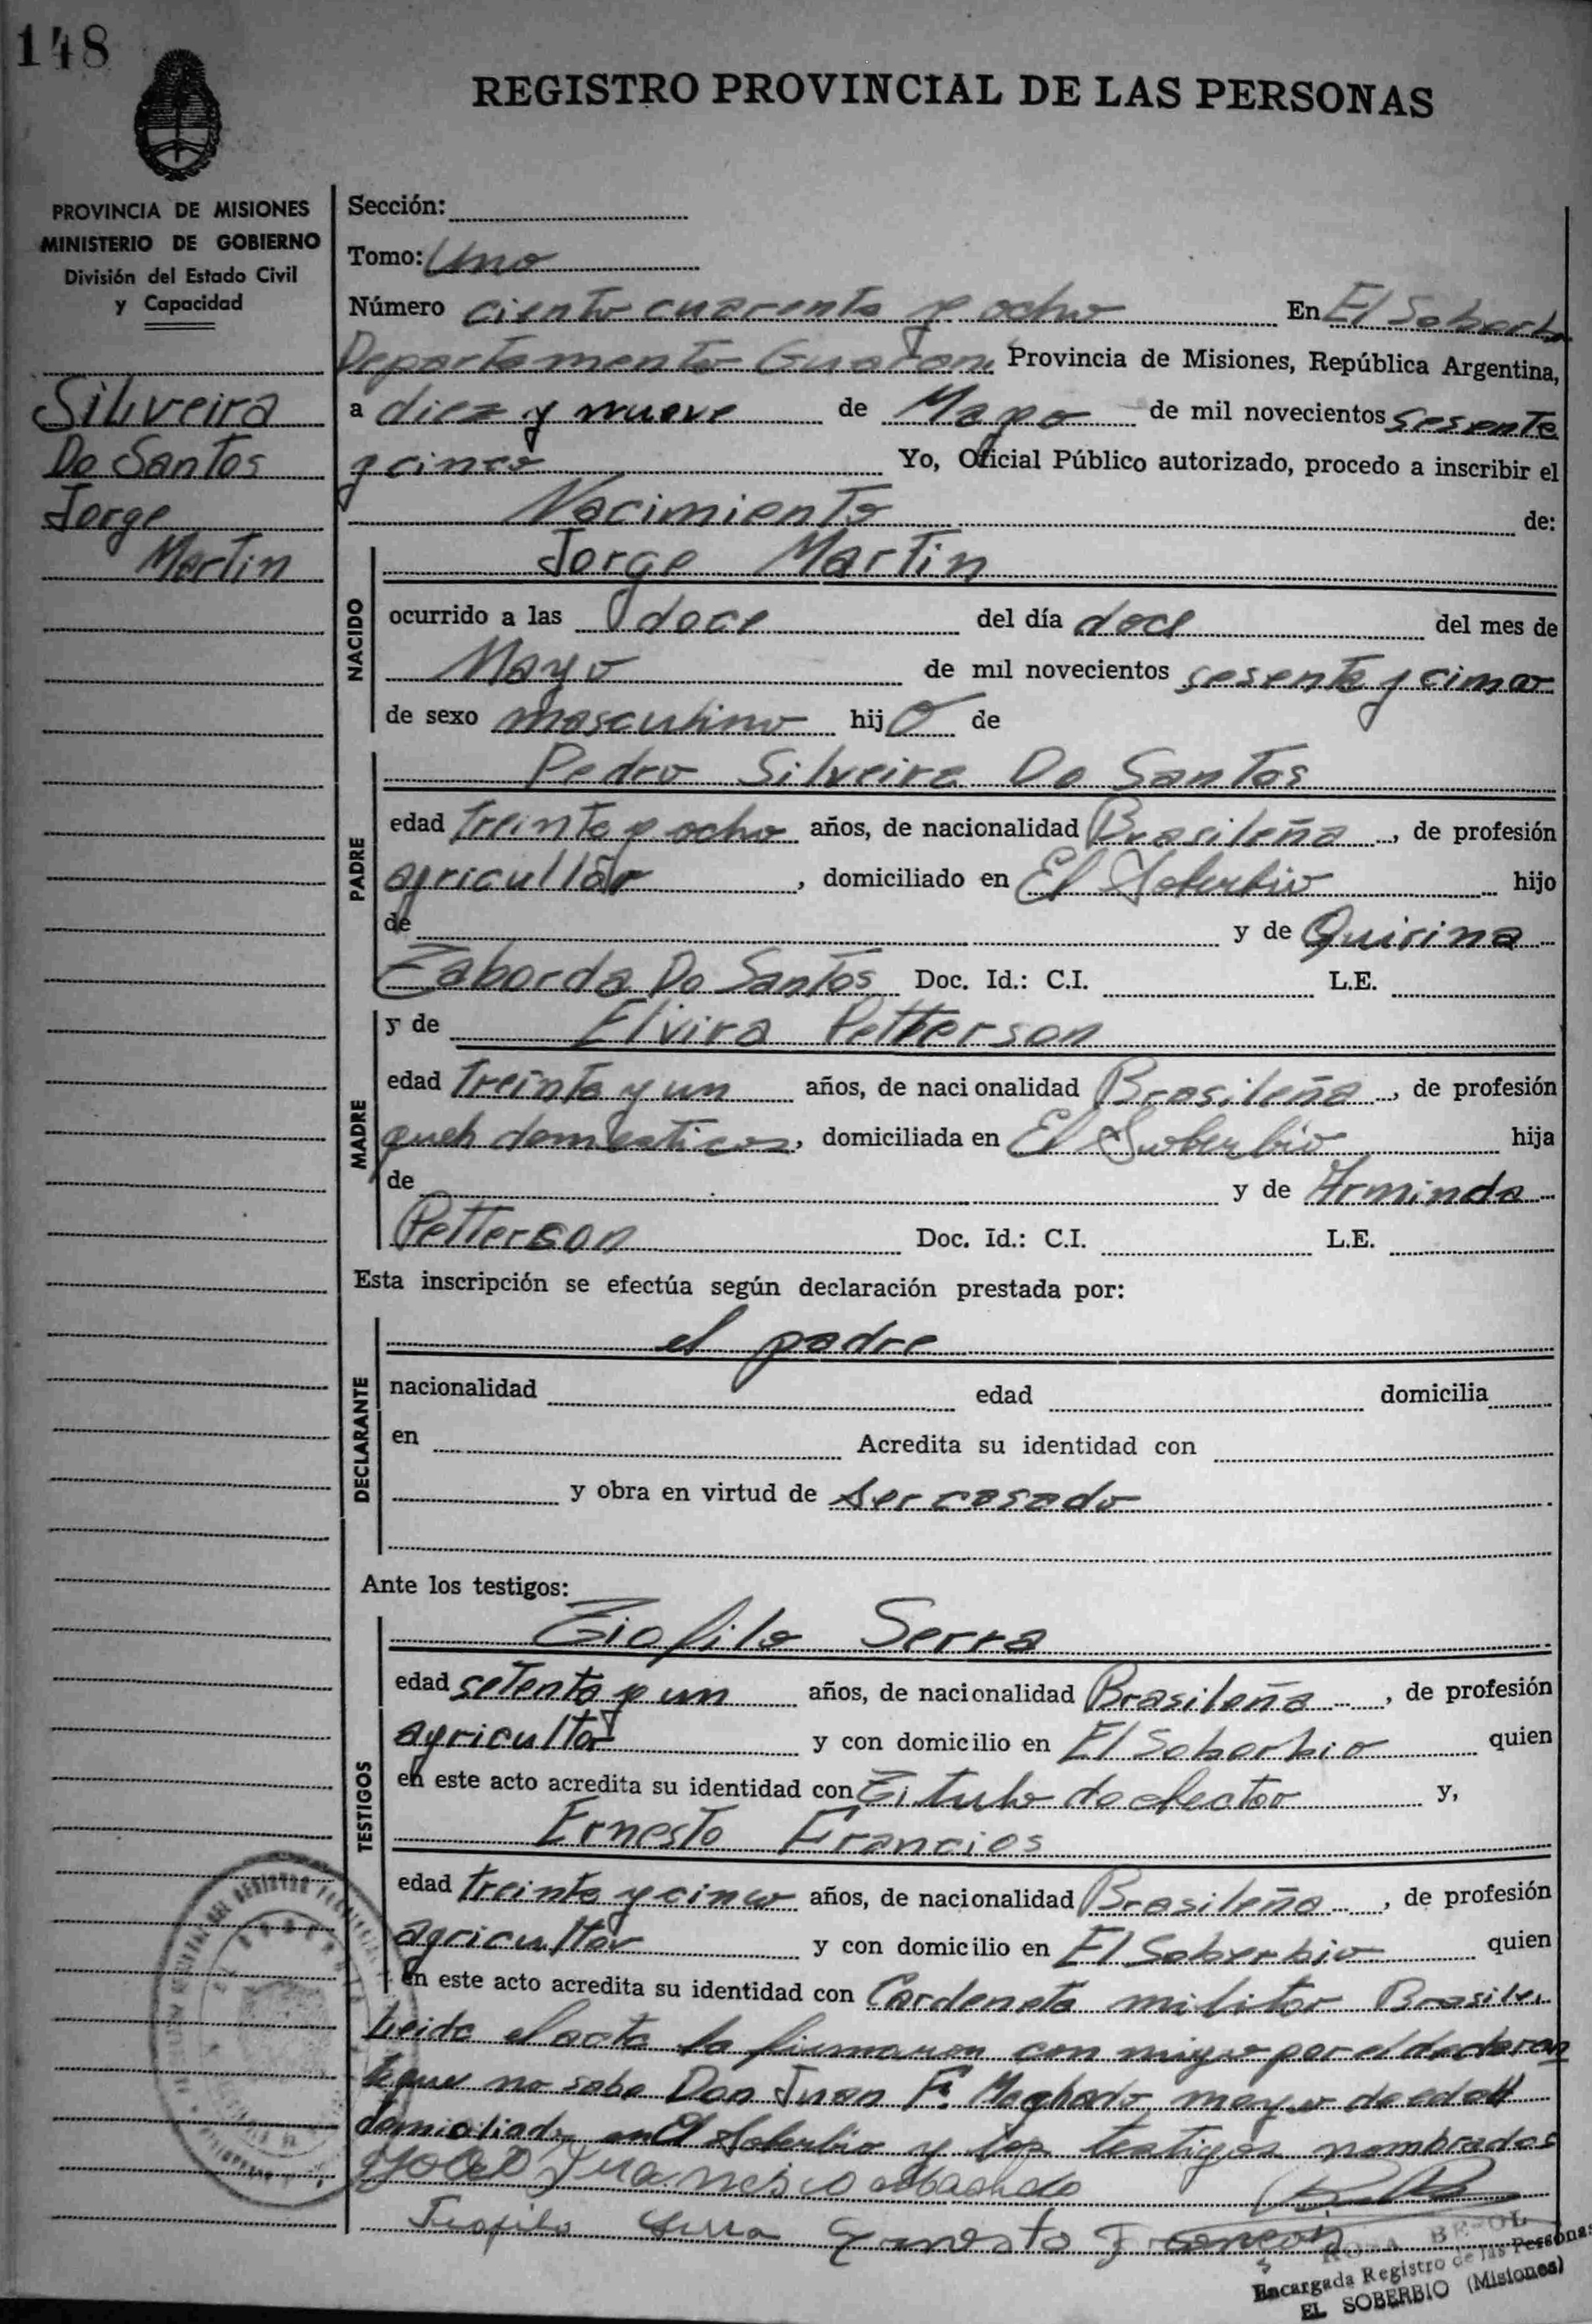 148
REGISTRO PROVINCIAL DE LAS PERSONAS
PROVINCIA DE MISIONES
MINISTERIO DE GOBIERNO
División del Estado Civil
y Capacidad
Silveira
Do Santos
Jorge
Martin
Sección:
Tomo: Uno
Número ciento cuarenta y ocho En El Soberbio
Departamento Guarani Provincia de Misiones, República Argentina,
a diez y nueve de Mayo de mil novecientos sesenta
y cinco Yo, Oficial Público autorizado, procedo a inscribir el
Nacimiento de:
NACIDO
Jorge Martin
ocurrido a las doce del día doce del mes de
Mayo de mil novecientos sesenta y cinco
de sexo masculino hijo de
PADRE
Pedro Silveira Do Santos
edad treinta y ocho años, de nacionalidad Brasileña, de profesión
agricultor, domiciliado en El Soberbio hijo
de y de Quirina
Taborda Do Santos Doc. Id.: C.I. L.E.
MADRE
y de Elvira Petterson
edad treinta y un años, de nacionalidad Brasileña, de profesión
queh domesticos, domiciliada en El Soberbio hija
de y de Arminda
Petterson Doc. Id.: C.I. L.E.
Esta inscripción se efectúa según declaración prestada por:
DECLARANTE
el padre
nacionalidad edad domicilia
en Acredita su identidad con
y obra en virtud de ser casado
Ante los testigos:
TESTIGOS
Tiofilo Serra
edad setenta y un años, de nacionalidad Brasileña, de profesión
agricultor y con domicilio en El Soberbio quien
en este acto acredita su identidad con Titulo de elector y,
Ernesto Francios
edad treinta y cinco años, de nacionalidad Brasileña, de profesión
agricultor y con domicilio en El Soberbio quien
en este acto acredita su identidad con Cardeneta militar Brasile.
Leida el acta la firmaron con migo por el declaran
te que no sabe Don Juan Fº Maghado mayor de edad
domiciliado en El Soberbio y los testigos nombrados
Teofilo Serra Ernesto
Encargada Registro de las Personas
EL SOBERBIO (Misiones)